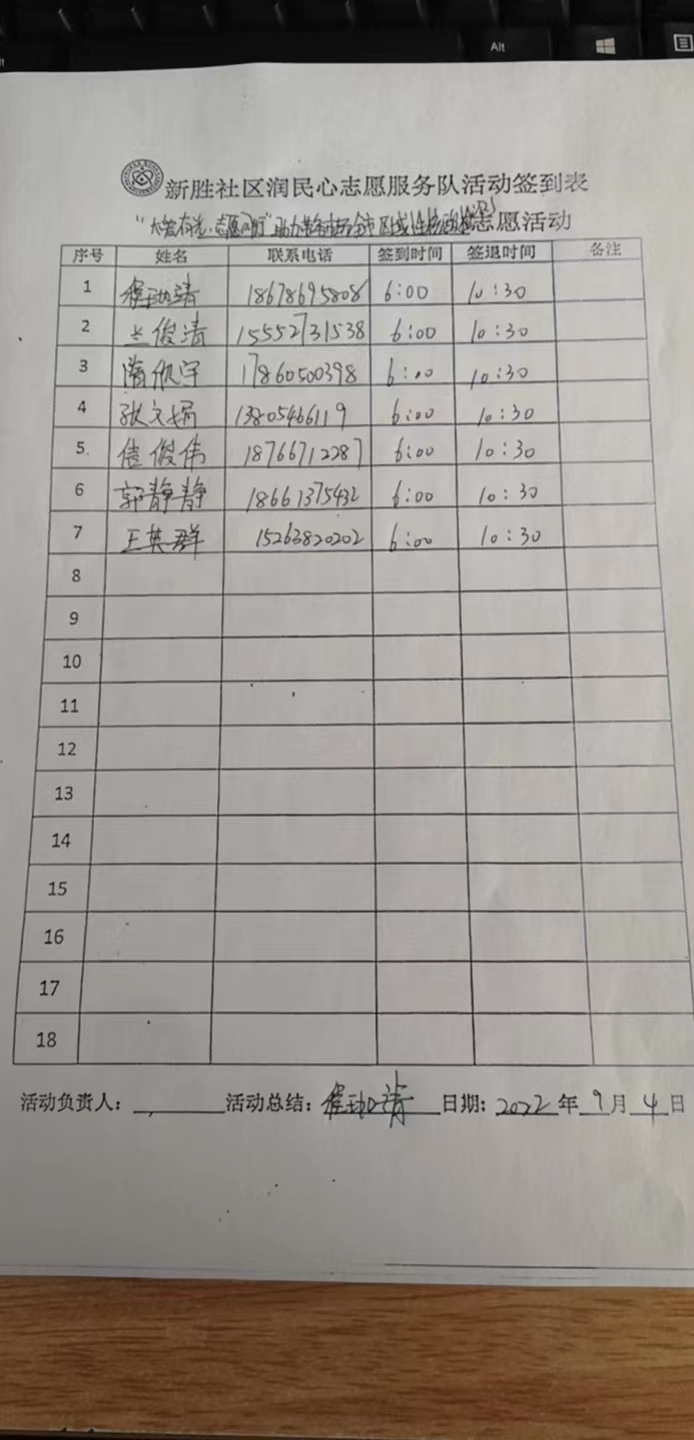 Alt
新胜社区润民心志愿服务队活动签到表
志愿活动
序号 姓名 联系电话 签到时间 签退时间 备注
1 程珈靖 18678695808 6:00 10:30
2 兰俊清 15552731538 6:00 10:30
3 隋欣宇 17860500398 6:00 10:30
4 张文娟 13805466119 6:00 10:30
5. 信俊伟 18766712287 6:00 10:30
6 郭静静 18661375432 6:00 10:30
7 王英群 15263820202 6:00 10:30
8
9
10
11
12
13
14
15
16
17
18
活动负责人: 活动总结: 程珈靖 日期: 2022 年 9 月 4 日